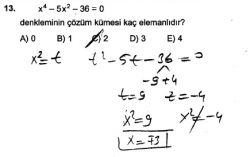 13. x⁴ – 5x² – 36 = 0
denkleminin çözüm kümesi kaç elemanlıdır?
A) 0 B) 1 C) 2 D) 3 E) 4
x² = t t² - 5t - 36 = 0
-9 +4
t = 9 t = -4
x² = 9 x² = -4
x = ∓3